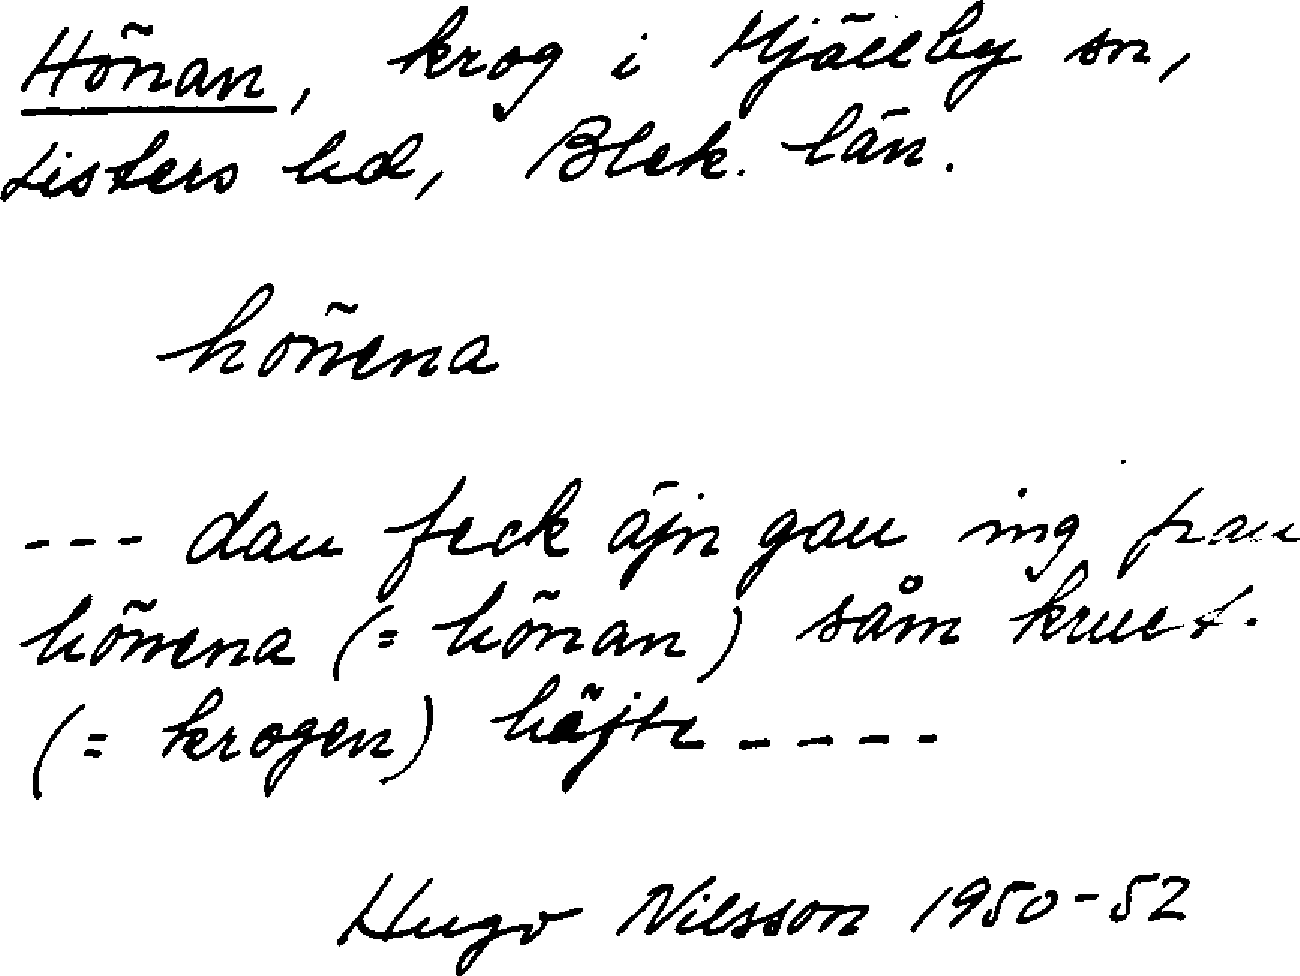 Hönan, krog i Mjällby sn,
Listers hd, Blek. län.
hönena
--- dau feck äjn gau ing pau
hönena (= hönan) såm kruet.
(= krogen) häjte ----
Hugo Nilsson 1950-52